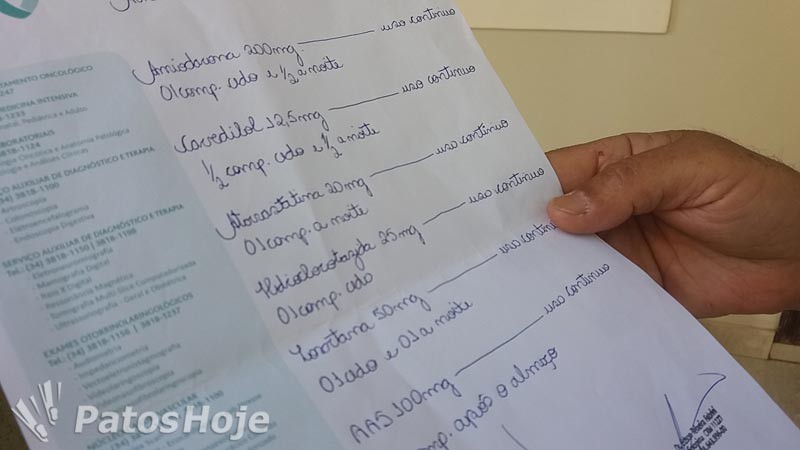 Amiodarona 200mg. ———— uso continuo
01 comp. cedo e 1/2 a noite
Carvedilol 12,5mg ———— uso continuo
1/2 comp. cedo e 1/2 a noite
Atorvastatina 20mg ———— uso continuo
01 comp. a noite
Hidroclorotiazida 25mg ———— uso continuo
01 comp. cedo
Losartana 50mg ———— uso contin
01 cedo e 01 a noite
AAS 100mg ———— uso continuo
mp. após o almoço
TAMENTO ONCOLÓGICO
247
MEDICINA INTENSIVA
-1233
Pediátrica e Adultos
BORATORIAIS
18-1124
ologia Oncótica e Anatomia Patológica
ologia e Análises Clínicas
ÇO AUXILIAR DE DIAGNÓSTICO E TERAPIA
(34) 3818-1100
- Colonoscopia
- Eletroencefalograma
- Endoscopia Digestiva
SERVIÇO AUXILIAR DE DIAGNÓSTICO E TERAPIA
Tel.: (34) 3818-1150 | 3818-1198
- Mamografia Digital
- Raio X Digital
- Ressonância Magnética
- Tomografia Multi Slice Computadorizada
- Ultrassonografia - Geral e Obstétrica
EXAMES OTORRINOLARINGOLÓGICOS
Tel.: (34) 3818-1156 | 3818-1237
- Audiometria
- Impedanciometria
- Vectoeletronistagmografia
PatosHoje